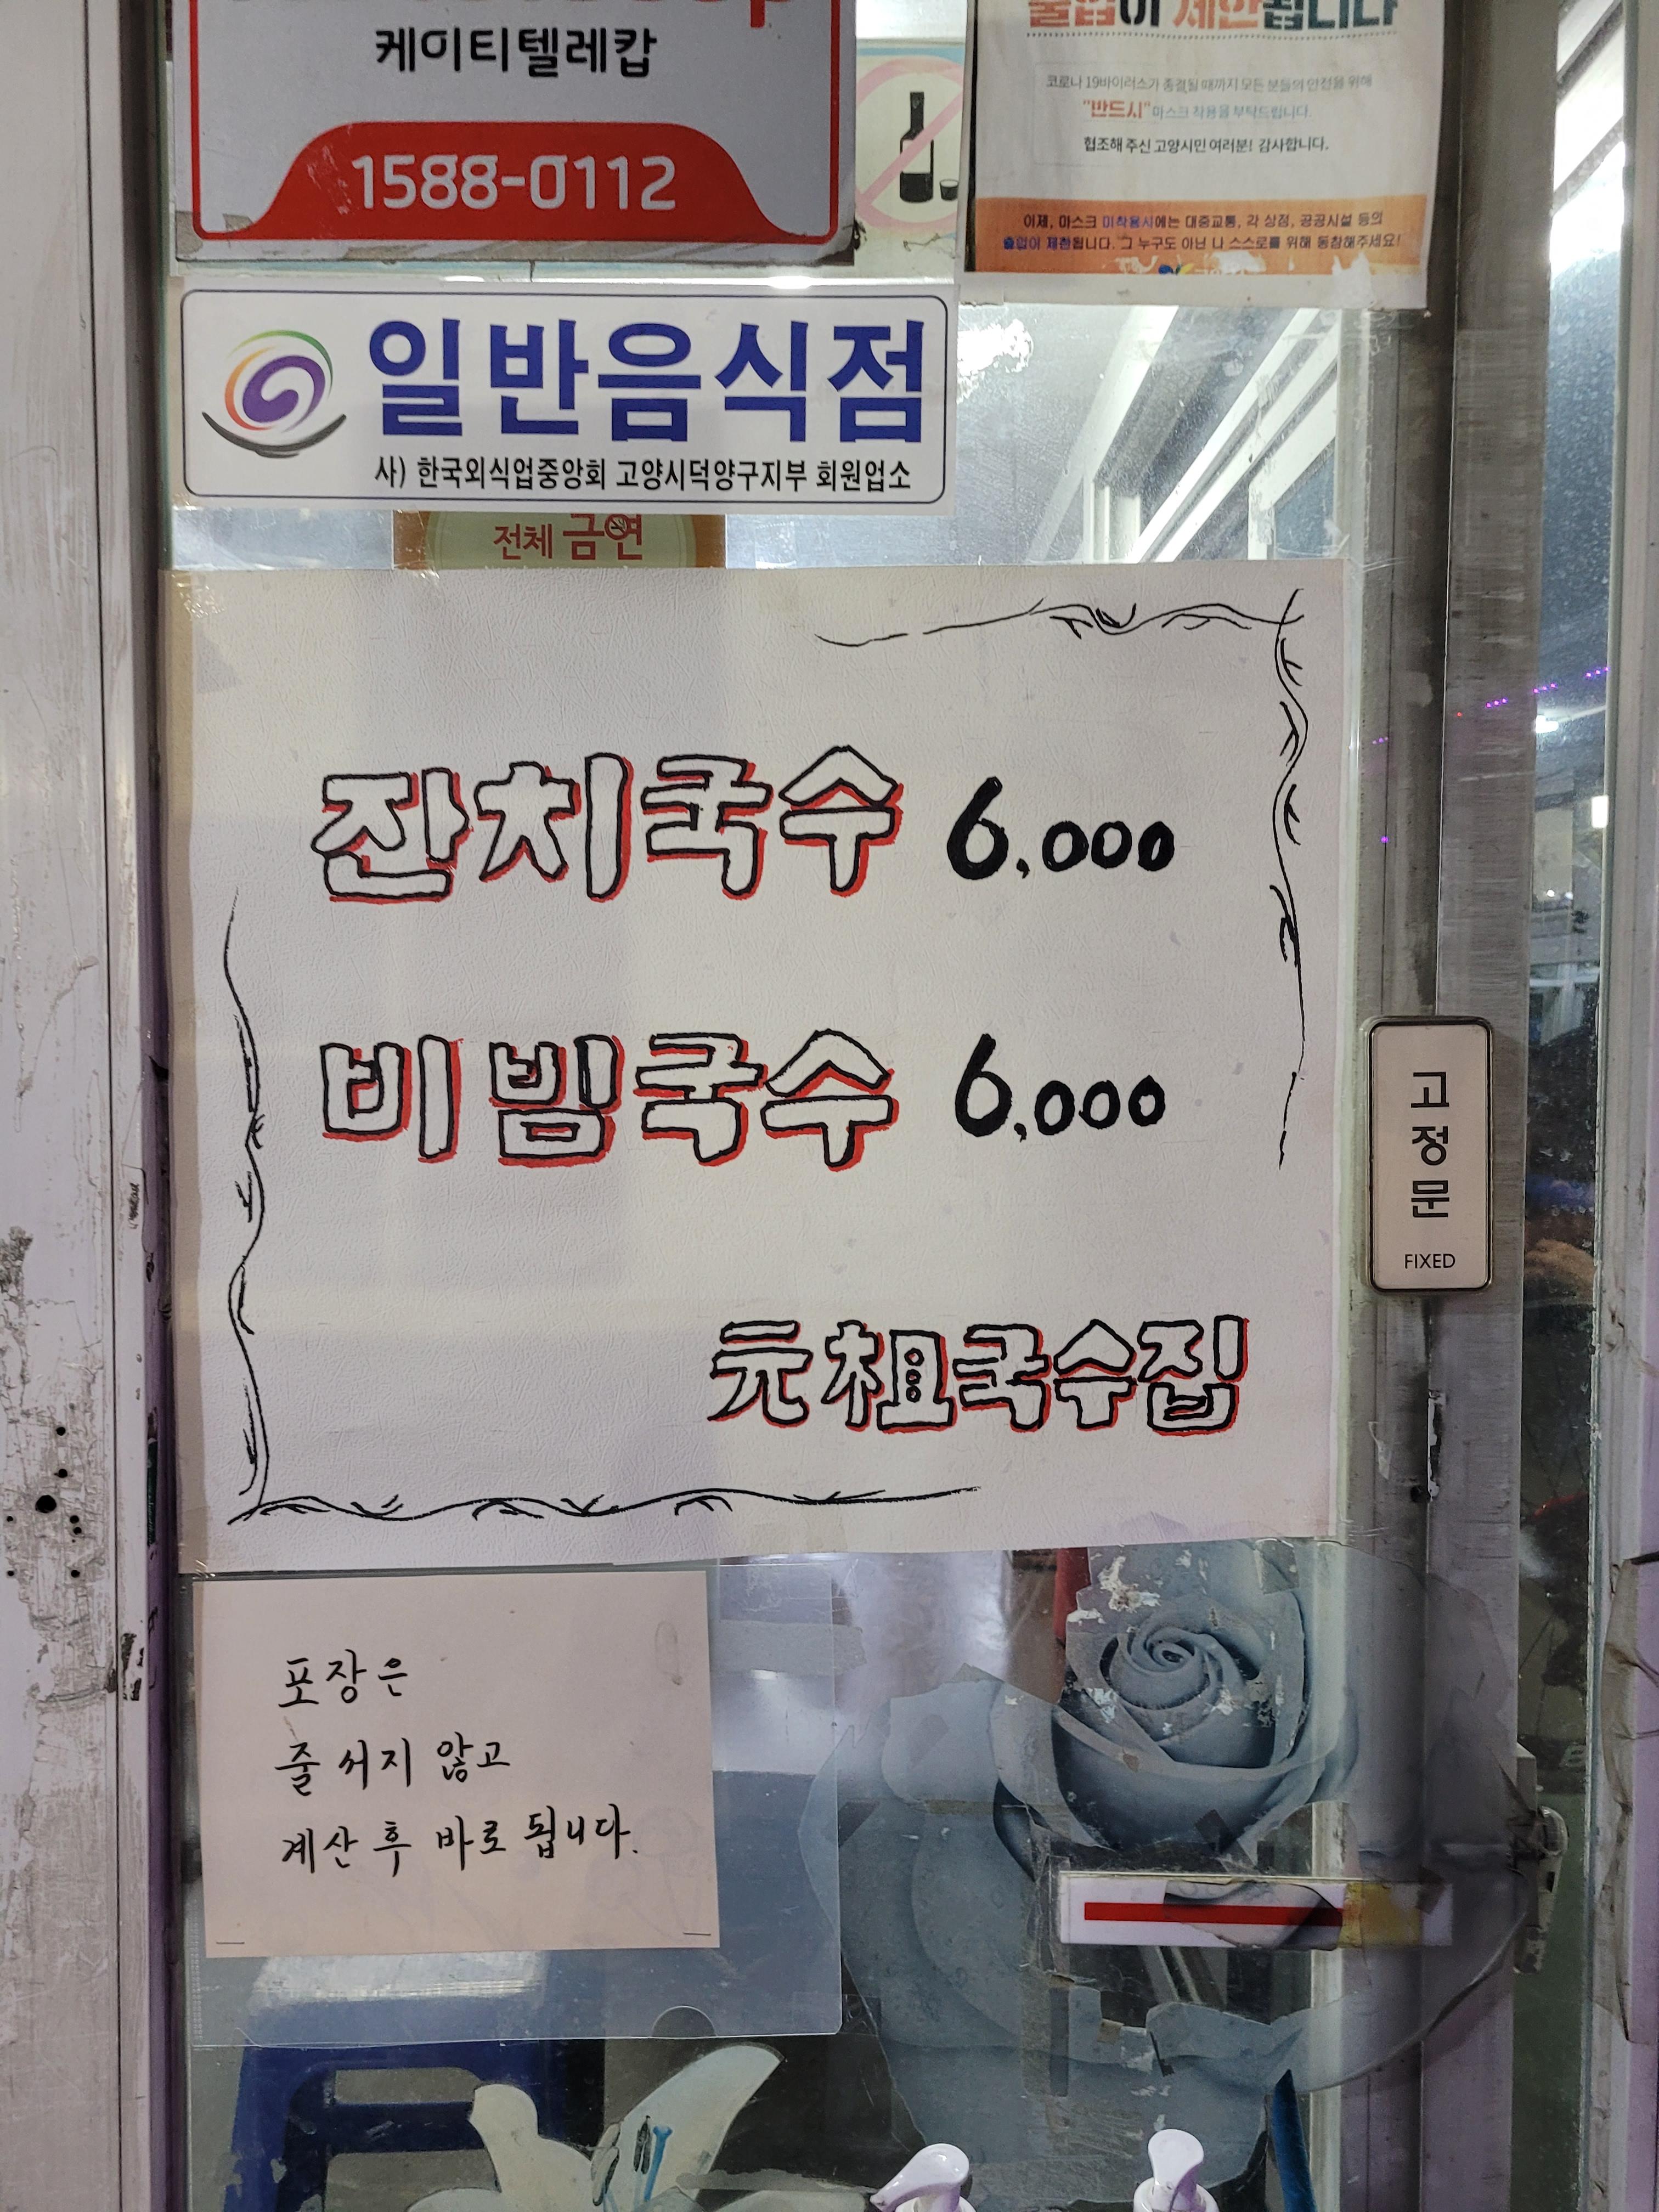 케이티텔레캅
1588-0112
출입이 제한됩니다
코로나 19바이러스가 종결될 때까지 모든 분들의 안전을 위해
"반드시" 마스크 착용을 부탁드립니다.
협조해 주신 고양시민 여러분! 감사합니다.
이제, 마스크 미착용시에는 대중교통, 각 상점, 공공시설 등의
출입이 제한됩니다. 그 누구도 아닌 나 스스로를 위해 동참해주세요!
일반음식점
사) 한국외식업중앙회 고양시덕양구지부 회원업소
전체 금연
잔치국수 6,000
비빔국수 6,000
元祖국수집
고정문
FIXED
포장은
줄 서지 않고
계산 후 바로 됩니다.